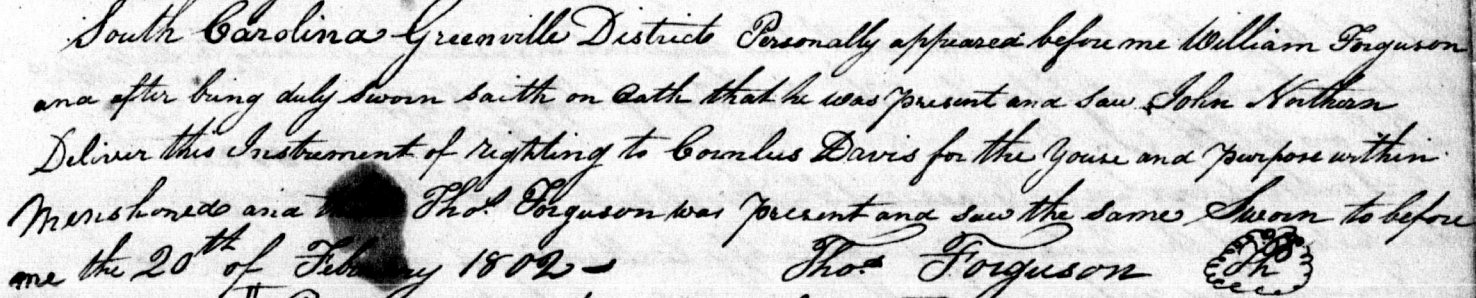 South Carolina Greenville District Personally appeared before me William Forguson
and after being duly sworn saith on oath that he was present and saw John Northern
Deliver this Instrument of righting to Cornlus Davis for the youse and purpose within
Menshoned and Thos. Forguson was present and saw the same Sworn to before
me the 20th of February 1802 Thos. Forguson